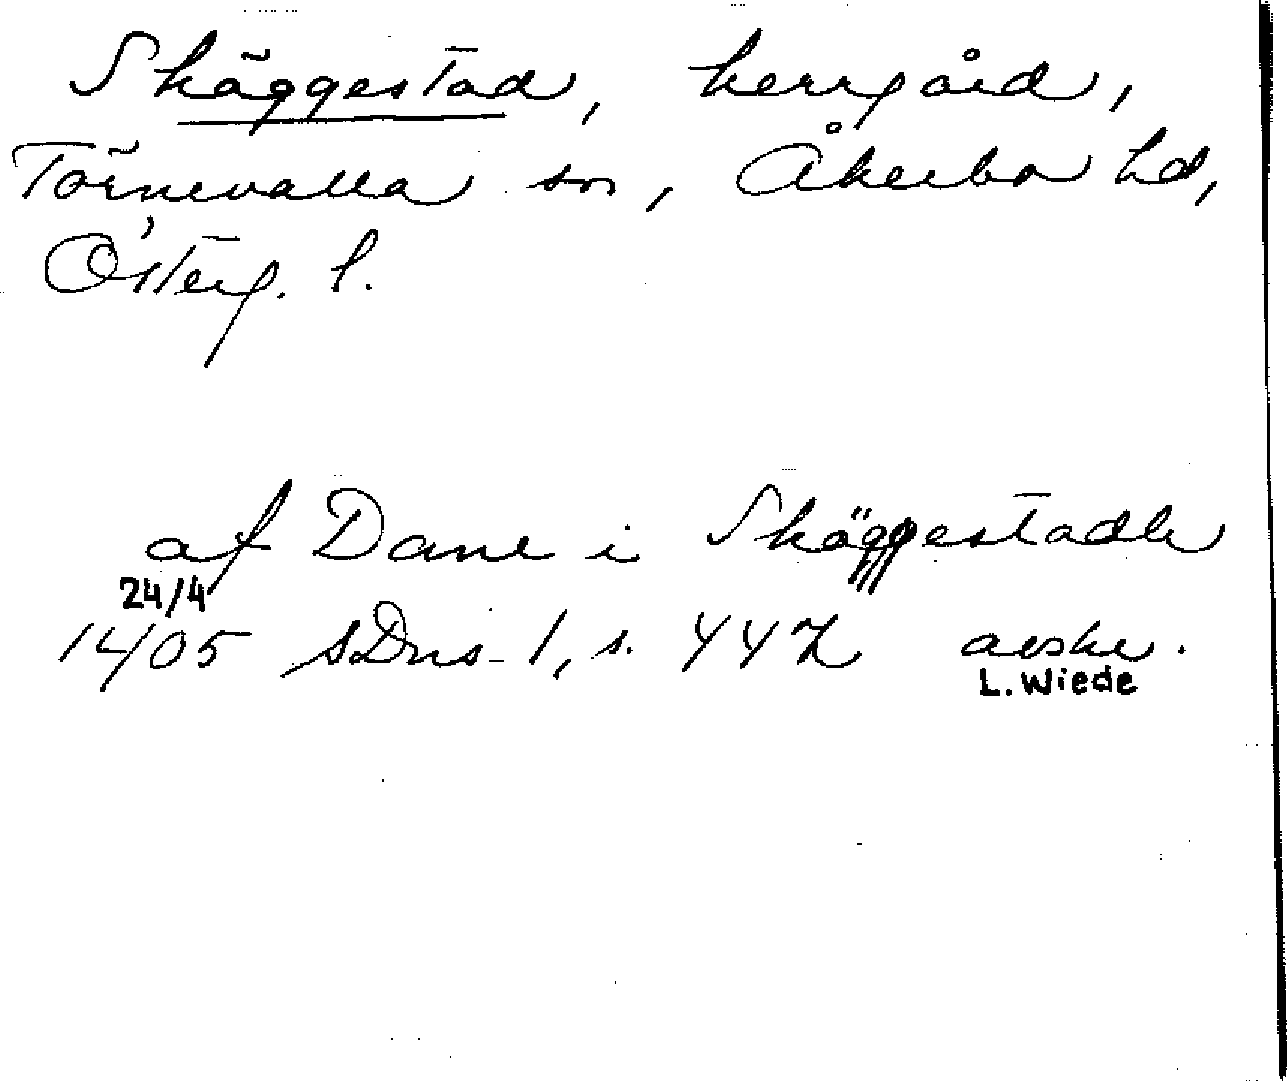 Skäggestad, herrgård,
Törnevalla sn, Åkerbo hd,
Österg. l.
af Dane i Skäggestadh
24/4
1405 SDns 1, s. 442 avskr.
L. Wiede